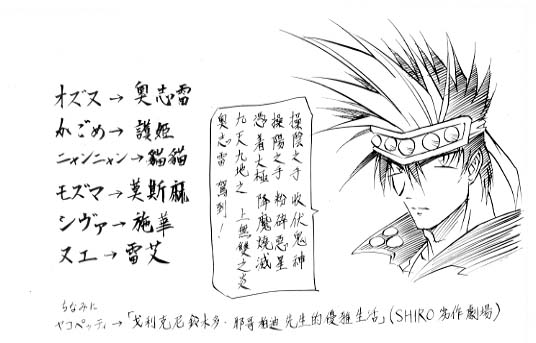 オズヌ→奥志雷
かごめ→護姫
ニャンニャン→貓貓
モズマ→莫斯麻
シヴァ→施華
ヌエ→雷艾
操陰之手 收伏鬼神
操陽之手 粉碎惡星
憑着太極 降魔燒滅
九天九地之 上無雙之炎
奥志雷 駕到！
ちなみに
ヤコペッティ→「戈利克尼鈴木多·耶哥柏迪先生的優雅生活」(SHIRO 劇場)